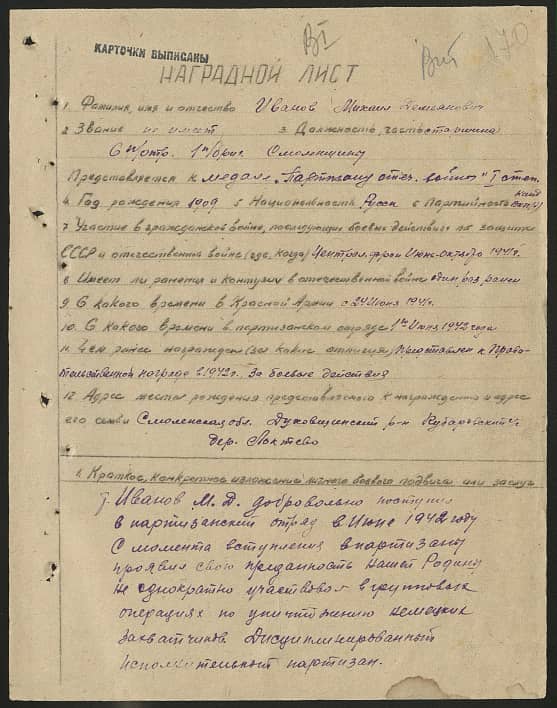 КАРТОЧКИ ВЫПИСАНЫ
НАГРАДНОЙ ЛИСТ
1. Фамилия, имя и отчество Иванов Михаил
2 Звание не имеет 3 Должность, часть старшина
6 п/отр. 1 п/бриг. Смоленщину
Представляется к медали "Партизану отеч. войны" I степ.
4. Год рождения 1909 5 Национальность Русск 6 Партийность
7. Участие в гражданской войне, последующих боевых действиях по защите
СССР и отечественной войне (где, когда) Централ. фрон Июнь-октябрь 1941г.
8 Имеет ли ранения и контузии в отечественной войне один раз ранен
9 С какого времени в Красной Армии с 24 Июня 1941г.
10. С какого времени в партизанском отряде 1го Июня 1942 года
11. Чем ранее награжден (за какие отличия) Представлен к Прави-
тельственной награде в 1942г. За боевые действия
12 Адрес места рождения представляемого к награждению и адрес
его семьи Смоленская обл. Духовщинский р-н
дер. Локтево
1. Краткое, конкретное изложение личного боевого подвига или заслуг
т. Иванов М. Д. добровольно поступил
в партизанский отряд в Июне 1942 году
С момента вступления в партизаны
проявил свою преданность нашей Родине
не однократно участвовал в групповых
операциях по уничтожению немецких
захватчиков Дисциплинированный
исполнительный партизан.